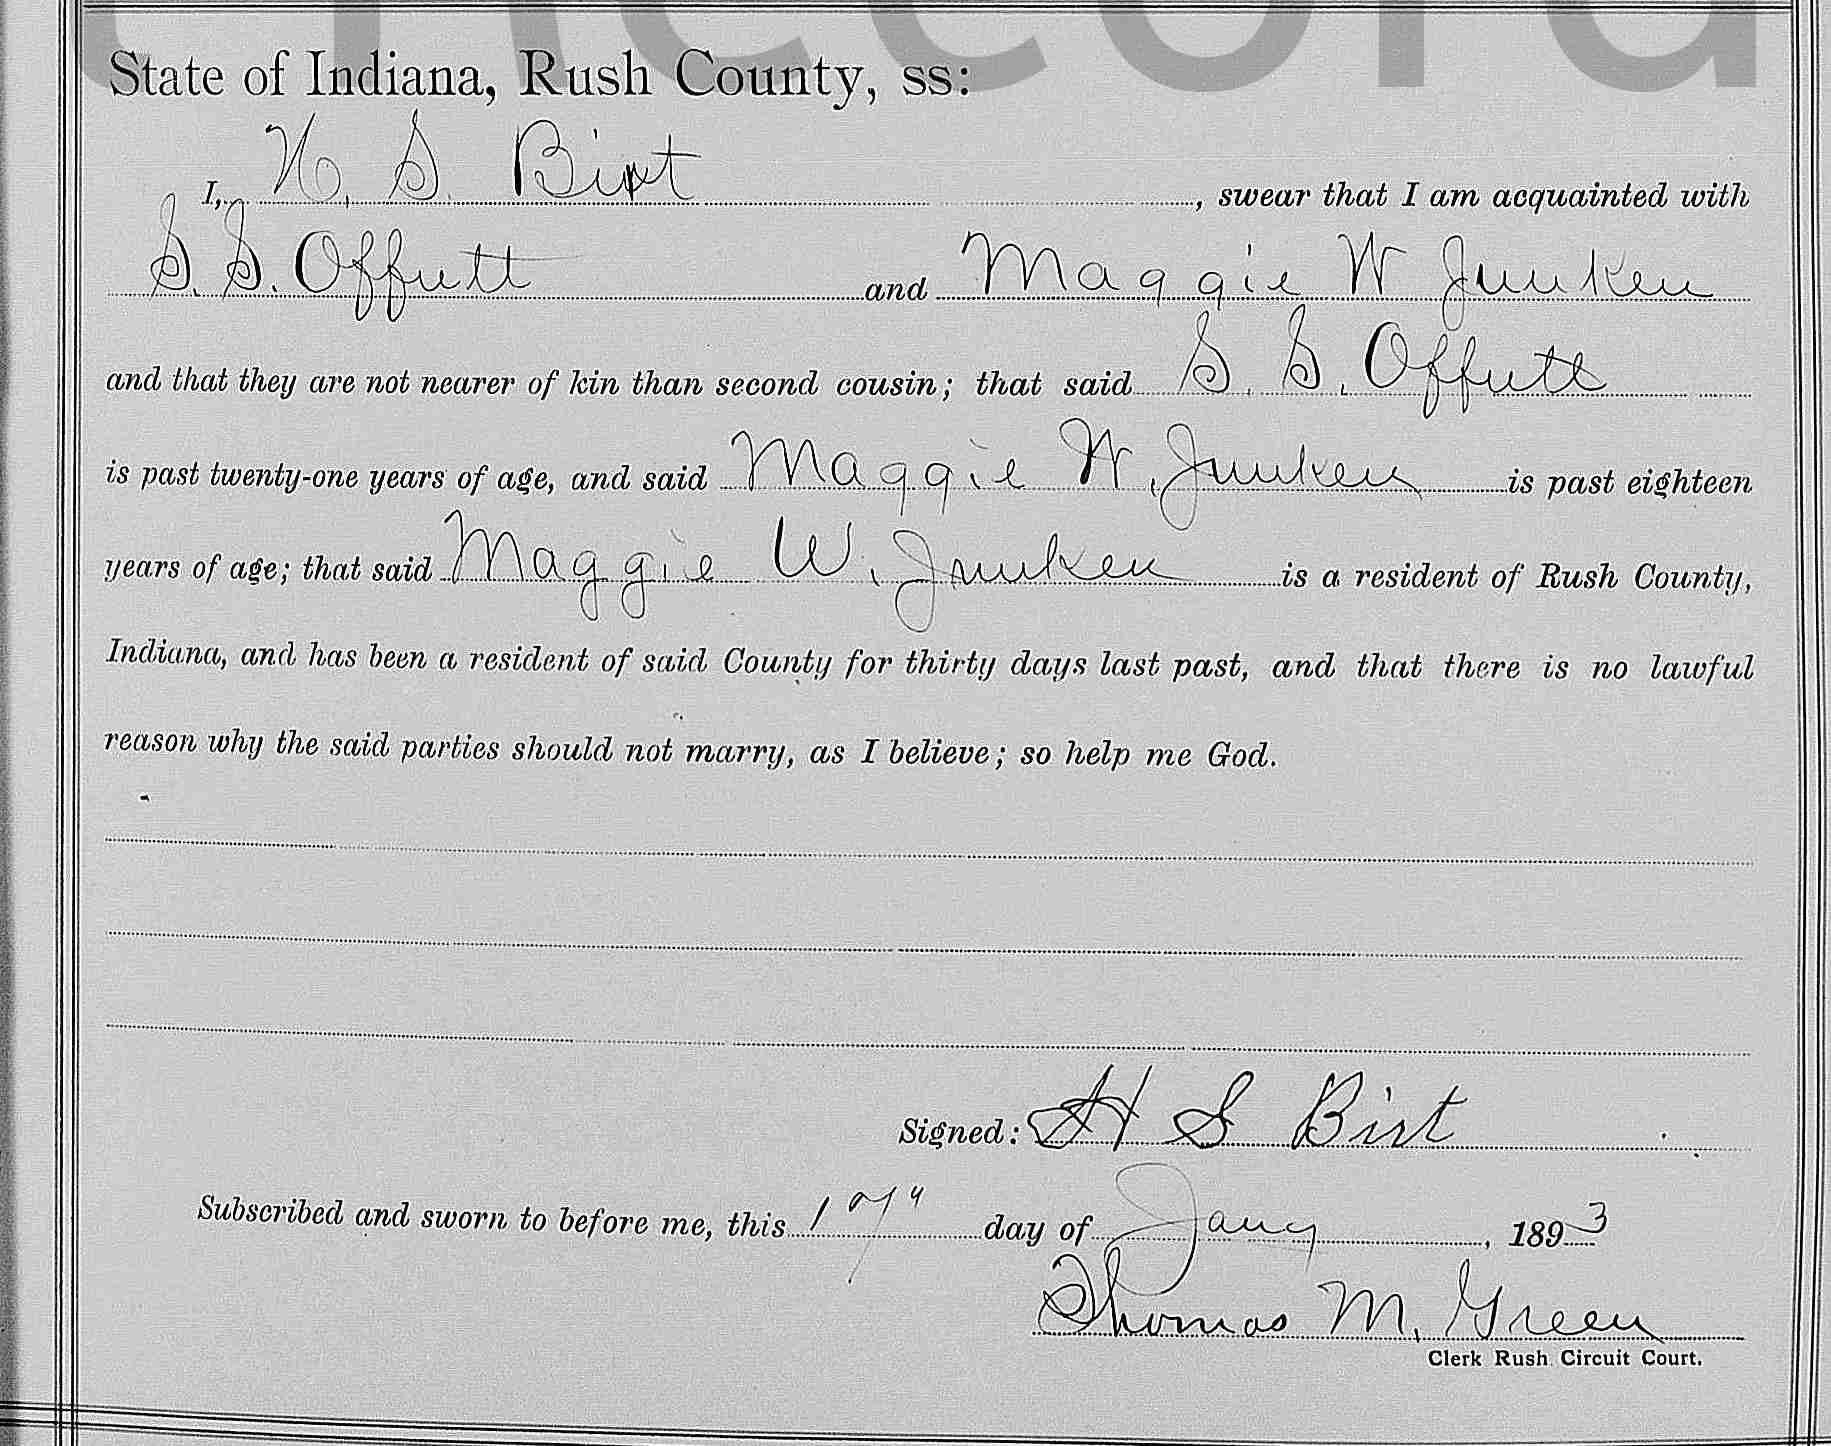 State of Indiana, Rush County, ss:
I, H. S. Birt, swear that I am acquainted with
S. S. Offutt and Maggie W Junken
and that they are not nearer of kin than second cousin; that said S. S. Offutt
is past twenty-one years of age, and said Maggie W. Junken is past eighteen
years of age; that said Maggie W. Junken is a resident of Rush County,
Indiana, and has been a resident of said County for thirty days last past, and that there is no lawful
reason why the said parties should not marry, as I believe; so help me God.
Signed: H S Birt
Subscribed and sworn to before me, this 17" day of Jany, 1893
Thomas M. Green
Clerk Rush Circuit Court.